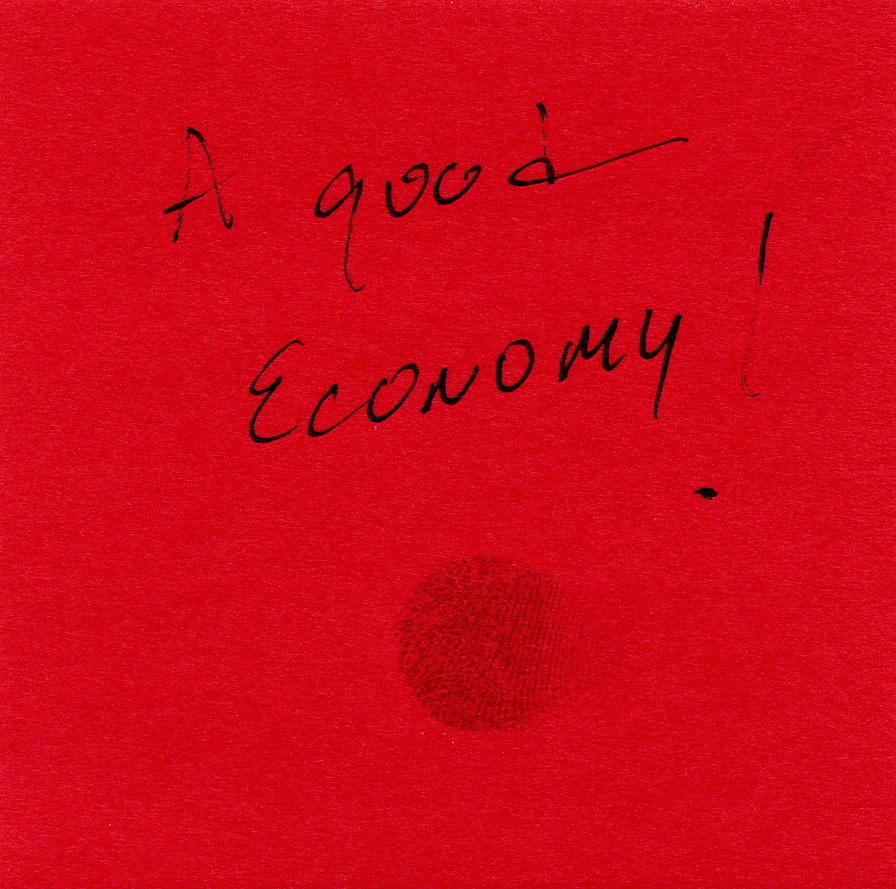 A good
Economy!